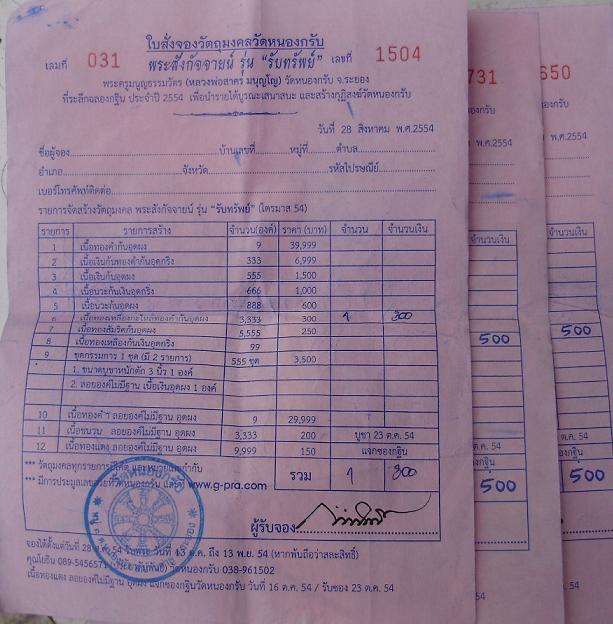 ใบสั่งจองวัตถุมงคลวัดหนองกรับ
เล่มที่ 031 พระสังกัจจายน์ รุ่น "รับทรัพย์" เลขที่ 1504
พระครูมนูญธรรมวัตร (หลวงพ่อสาคร มนุญโญ) วัดหนองกรับ จ.ระยอง
ที่ระลึกฉลองกฐิน ประจำปี 2554 เพื่อนำรายได้บูรณะเสนาสนะ และสร้างกุฏิสงฆ์วัดหนองกรับ
วันที่ 28 สิงหาคม พ.ศ.2554
ชื่อผู้จอง บ้านเลขที่ หมู่ที่ ตำบล
อำเภอ จังหวัด รหัสไปรษณีย์
เบอร์โทรศัพท์ติดต่อ
รายการจัดสร้างวัตถุมงคล พระสังกัจจายน์ รุ่น "รับทรัพย์" (ไตรมาส 54)
รายการ รายการสร้าง จำนวน(องค์) ราคา (บาท) จำนวน จำนวนเงิน
1 เนื้อทองคำก้นอุดผง 9 39,999
2 เนื้อเงินก้นทองคำก้นอุดกริ่ง 333 6,999
3 เนื้อเงินก้นอุดผง 555 1,500
4 เนื้อนวะก้นเงินอุดกริ่ง 666 1,000
5 เนื้อนวะก้นอุดผง 888 600
6 เนื้อทองเหลืองกะไหล่ทองคำก้นอุดผง 3,333 300 1 300
7 เนื้อทองสัมริดก้นอุดผง 5,555 250
8 เนื้อทองเหลืองก้นเงินอุดกริ่ง 99
9 ชุดกรรมการ 1 ชุด (มี 2 รายการ) 555 ชุด 3,500
1. ขนาดบูชาหน้าตัก 3 นิ้ว 1 องค์
2. ลอยองค์ไม่มีฐาน เนื้อเงินอุดผง 1 องค์
10 เนื้อทองคำ ลอยองค์ไม่มีฐาน อุดผง 9 29,999
11 เนื้อชนวน ลอยองค์ไม่มีฐาน อุดผง 3,333 200 บูชา 23 ต.ค. 54
12 เนื้อทองแดง ลอยองค์ไม่มีฐาน อุดผง 9,999 150 แจกซองกฐิน
*** วัตถุมงคลทุกรายการ และหมายเลขกำกับ
*** มีการประมูลเลขสวย วัดหนองกรับ www.g-pra.com
รวม 1 300
ผู้รับจอง
จองได้ตั้งแต่วันที่ 28 54 13 ต.ค. ถึง 13 พ.ย. 54 (หากพ้นถือว่าสละสิทธิ์)
คุณโยธิน 089-5456571 วัดหนองกรับ 038-961502
เนื้อทองแดง ลอยองค์ไม่มีฐาน อุดผง แจกซองกฐินวัดหนองกรับ วันที่ 16 ต.ค. 54 / รับซอง 23 ต.ค. 54
731
พ.ศ.2554
จำนวนเงิน
500
ต.ค. 54
500
650
พ.ศ.2554
จำนวนเงิน
500
ต.ค. 54
500